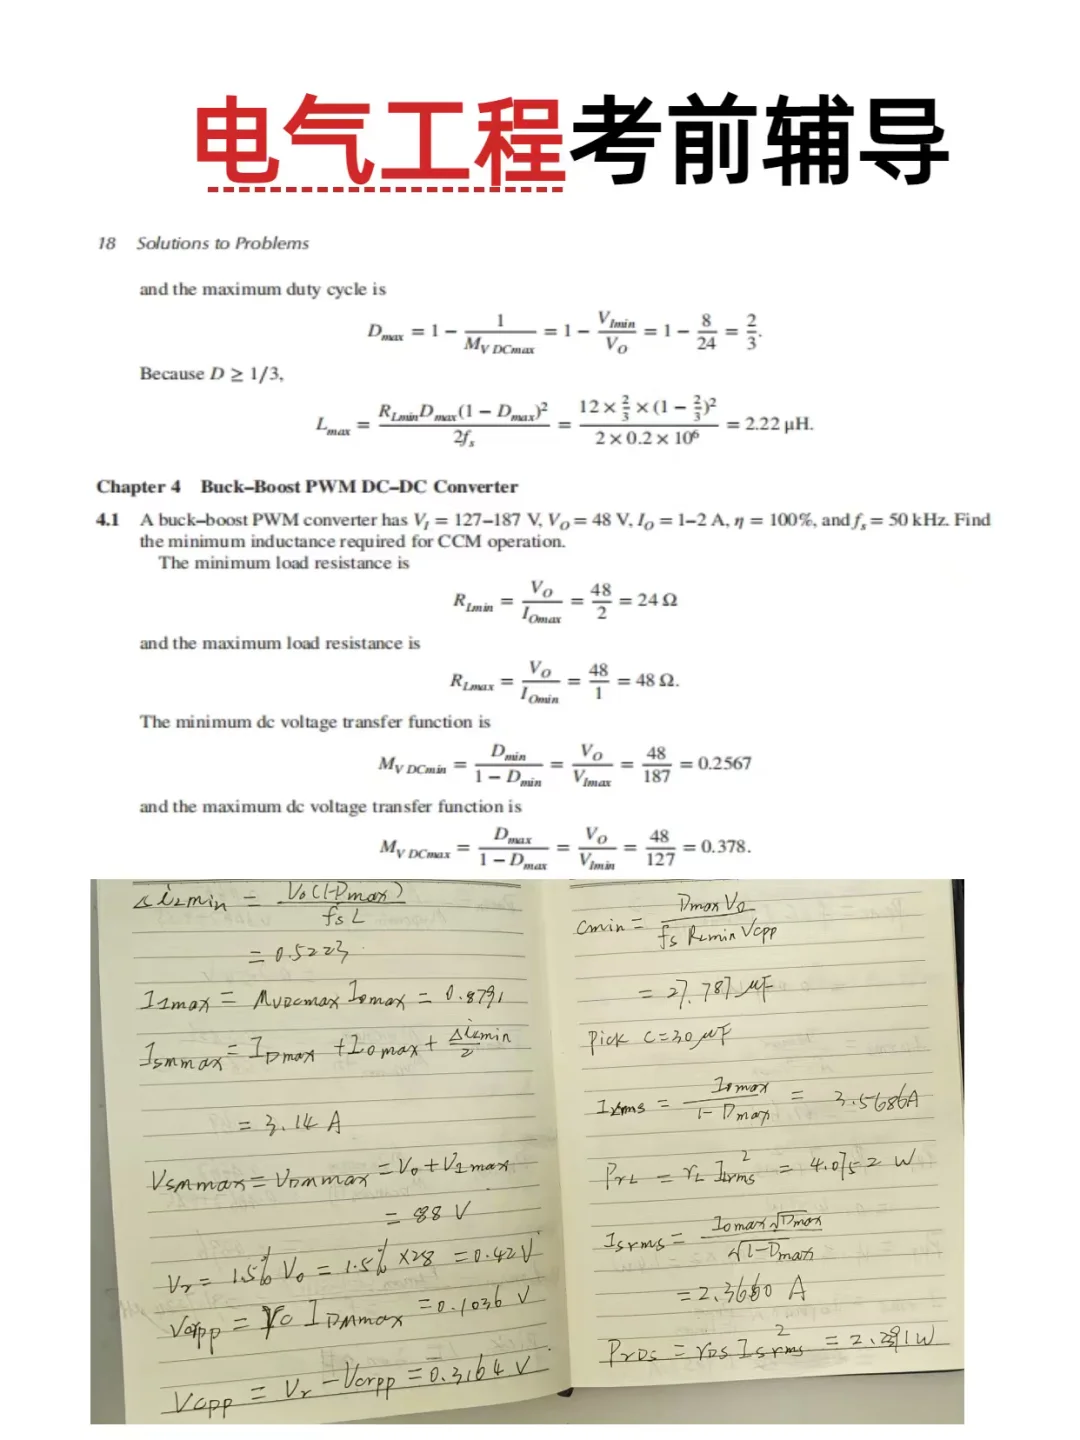 电气工程考前辅导
18 Solutions to Problems
and the maximum duty cycle is
D_max = 1 − 1/M_{V DCmax} = 1 − V_{Imin}/V_O = 1 − 8/24 = 2/3.
Because D ≥ 1/3,
L_max = R_{Lmin}D_max(1 − D_max)²/2f_s = 12 × 2/3 × (1 − 2/3)²/2 × 0.2 × 10⁶ = 2.22 μH.
Chapter 4 Buck–Boost PWM DC–DC Converter
4.1 A buck–boost PWM converter has V_I = 127–187 V, V_O = 48 V, I_O = 1–2 A, η = 100%, and f_s = 50 kHz. Find
the minimum inductance required for CCM operation.
The minimum load resistance is
R_{Lmin} = V_O/I_{Omax} = 48/2 = 24 Ω
and the maximum load resistance is
R_{Lmax} = V_O/I_{Omin} = 48/1 = 48 Ω.
The minimum dc voltage transfer function is
M_{V DCmin} = D_min/1 − D_min = V_O/V_{Imax} = 48/187 = 0.2567
and the maximum dc voltage transfer function is
M_{V DCmax} = D_max/1 − D_max = V_O/V_{Imin} = 48/127 = 0.378.
Δi_{Lmin} = V_o(1-D_max)/f_s L
= 0.5223
I_{Imax} = M_{VDCmax} I_{omax} = 0.8791
I_{SMmax} = I_{Dmax} + I_{omax} + Δi_{Lmin}/2
= 3.14 A
V_{SMmax} = V_{DMmax} = V_o + V_{Imax}
= 88 V
V_r = 1.5% V_o = 1.5% × 28 = 0.42 V
V_{crpp} = r_c I_{DMmax} = 0.1036 V
V_{cpp} = V_r - V_{crpp} = 0.3164 V
C_min = D_max V_o/f_s R_{Lmin} V_{cpp}
= 27.787 μF
Pick C = 30 μF
I_{Lrms} = I_{omax}/1-D_max = 3.5686A
P_{rL} = r_L I_{Lrms}² = 4.0752 W
I_{srms} = I_{omax}√D_max/√1-D_max
= 2.3660 A
P_{rDS} = r_{DS} I_{srms}² = 2.2391 W